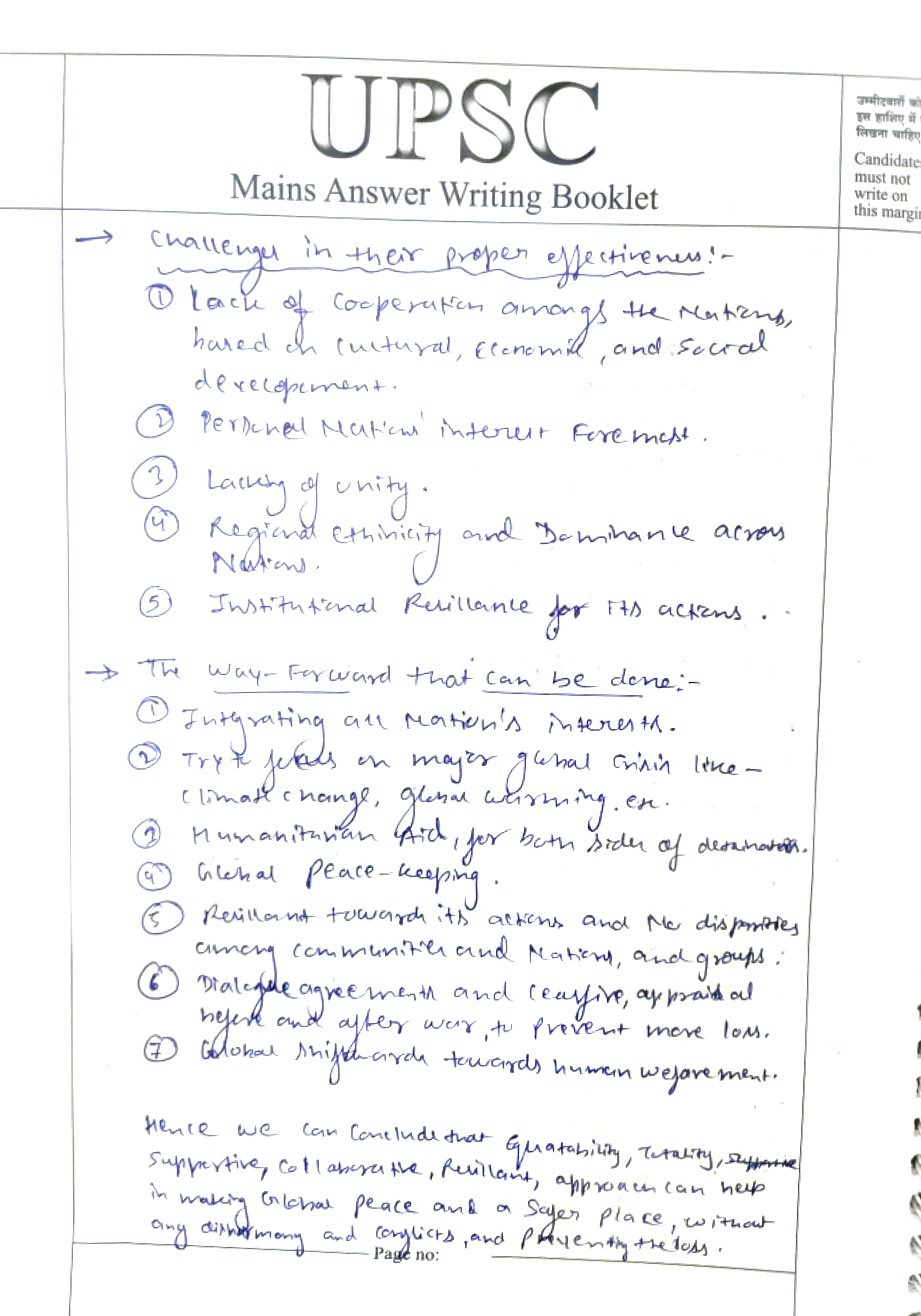 UPSC
Mains Answer Writing Booklet
उम्मीदवारों को
इस हाशिए में
लिखना चाहिए
Candidate
must not
write on
this margi
→ Challenges in their proper effectiveness:-
① Lack of Cooperation amongs the Nations,
based on Cultural, Economic, and Social
developement.
② Personal Nations' interest Foremost.
③ Lacking of unity.
④ Regional ethinicity and Dominance across
Nations.
⑤ Institutional Resillance for its actions.
→ The way-Forward that can be done:-
① Integrating all Nation's interests.
② Try to focus on major global Crisis like-
Climate change, global warming. etc.
③ Humanitarian Aid, for both sides of
④ Global Peace-keeping.
⑤ Resillant towards its actions and No disparities
among communities and Nations, and groups.
⑥ Dialogue agreements and Ceasfire, appraisal
before and after war, to prevent more loss.
⑦ Global towards human
Hence we can Conclude that Equatability, Totality,
Supportive, Collaborative, Resillant, approach can help
in making Global peace and a Safer place, without
any disharmony and conflicts, and Preventing the loss.
Page no: